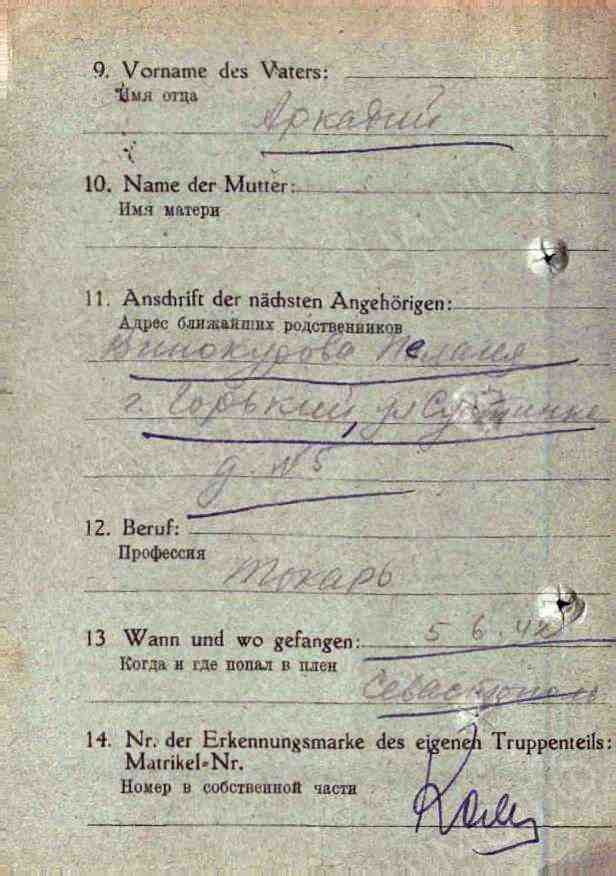 9. Vorname des Vaters:
Имя отца
Аркадий
10. Name der Mutter:
Имя матери
11. Anschrift der nächsten Angehörigen:
Адрес ближайших родственников
Винокурова Пелагея
г. Горький, ул
д. № 5
12. Beruf:
Профессия
токарь
13 Wann und wo gefangen:
5 6. 42
Когда и где попал в плен
Севастополь
14. Nr. der Erkennungsmarke des eigenen Truppenteils:
Matrikel=Nr.
Номер в собственной части